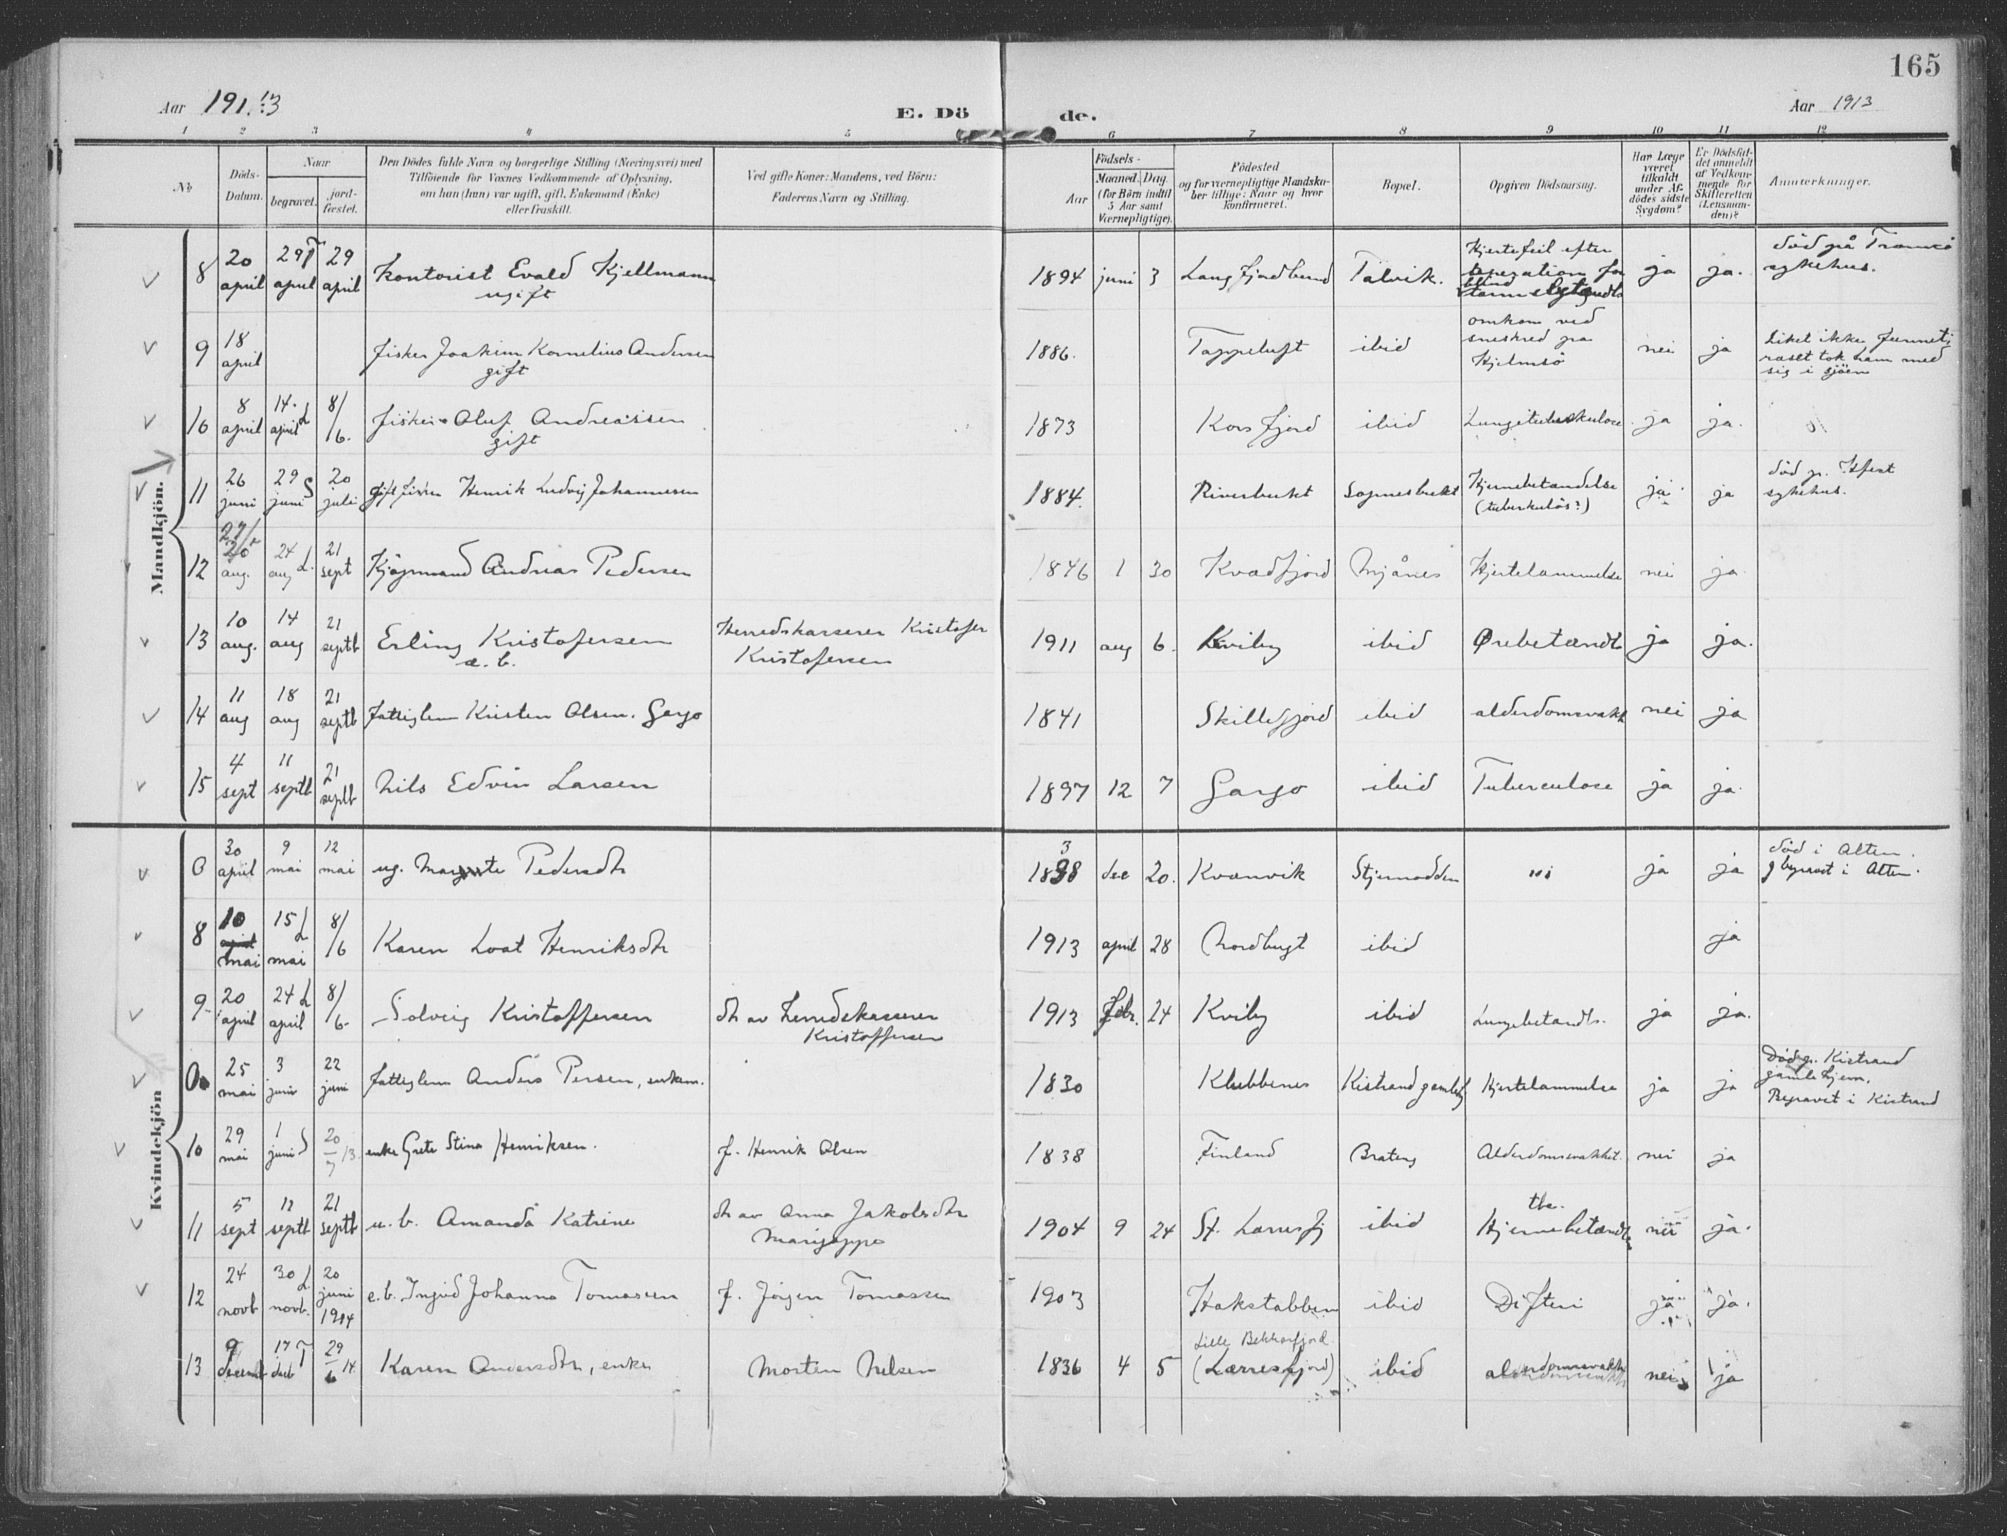 165
Aar 1913
E. Dö
de.
Aar 1913
1 2 3 4 5 6 7 8 9 10 11 12
No
Döds-
Datum.
Naar
begravet.
jord-
fæstet.
Den Dödes fulde Navn og borgerlige Stilling (Næringsvei) med
Tilföiende for Voxnes Vedkommende af Oplysning,
om han (hun) var ugift, gift, Enkemand (Enke)
eller fraskilt.
Ved gifte Koner: Mandens, ved Börn:
Faderens Navn og Stilling.
Födsels-
Aar
Maaned. Dag
(for Börn indtil
5 Aar samt
Værnepligtige).
Födested
og for værnepligtige Mandska-
ber tillige: Naar og hvor
konfirmeret.
Bopæl.
Opgiven Dödsaarsag.
Har Læge
været
tilkaldt
under Af-
dödes sidste
Sygdom?
Er Dödsfal-
det anmeldt
af Vedkom-
mende for
Skifteretten
(Lensman-
den)?
Anmærkninger.
Mandkjön.
8 20 april 29 T april 29 april Kontorist Evald Kjellmann ugift 1894 juni 3 Langfjordbund Talvik. Hjertefeil efter operation for blind tarmsbetændls ja ja. död på Tromsö sykehus.
9 18 april fisker Joakim Kornelius Andersen gift 1886. Tappeluft ibid omkom ved sneskred på Hjelmsö nei ja Liket ikke funnet; raset tok ham med sig i sjöen
10 8 april 14. L april 8/6. fisker Oluf Andreassen gift 1873 Korsfjord ibid Lungetuberkulose ja ja.
11 26 juni 29 S juni 20 juli gift fisker Henrik Ludvig Johannesen 1884. Riverbukt Sopnesbukt Hjernebetændelse (tuberkuløs?) ja ja död på Hfest sykehus.
12 aug. 24 L. aug 21 sept Kjøpmand Andreas Pedersen 1846 1 30 Kvædfjord Mjånes Hjertelammelse nei ja
13 10 aug. 14 aug 21 septb Erling Kristofersen æ. b. Herredskasserer Kristofer Kristofersen 1911 aug 6. Kviby ibid Ørebetændls ja ja.
14 11 aug 18 aug 21 septb fattiglem Kristen Olsen. Gargo 1841 Skillefjord ibid alderdomssvakh nei ja
15 4 sept 11 septb 21 septb Nils Edvin Larsen 1897 12 7 Gargo ibid Tuberculose ja ja
Kvindekjön
0 30 april 9 mai 12 mai ug. Margrete Pedersdtr 1898 3 dec 20. Kvænvik Stjernodden ja ja død i Alten. begravet i Alten.
8 10 mai 15 L mai 8/6 Karen Loat Henriksdtr 1913 april 28 Nordbugt ibid ja
9 20 april 24 L april 8/6- Solveig Kristoffersen dtr av herredskasserer Kristoffersen 1913 febr. 24 Kviby ibid Lungebetændls. ja ja.
0 25 mai 3 juni 22 juni fattiglem Anders Persen, enkem. 1830 Klubbenes Kistrand gamlehj Hjertelammelse ja ja Död p. Kistrand gamlehjem. Begravet i Kistrand
10 29 mai 1 S juni 20/7 13. enke Grete Stina Henriksen. f. Henrik Olsen 1838 Finland Brateng Alderdomssvakhet. nei ja
11 5 sept 12 septb 21 septb u. b. Amanda Katrine dtr av Anna Jakobsdtr 1904 9 24 St. Lerresfj ibid tbc. Hjernebetændls nei ja.
12 24 novb 30 L novb. 20 juni 1914 e. b. Ingrid Johanna Tomassen f. Jörgen Tomassen 1903 Hakstabben ibid Difteri ja ja.
13 9 decemb 17 T decb 29/6 14 Karen Andersdtr, enke Morten Nelsen 1836 4 5 Lille Bekkarfjord (Lerresfjord) ibid alderdomssvakh nei ja